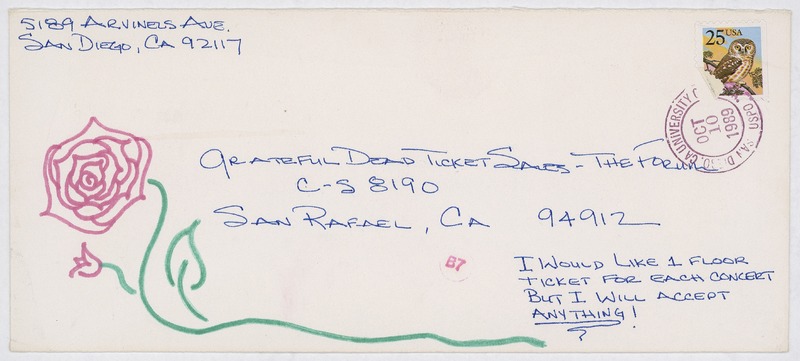 5189 ARVINELS AVE.
SAN DIEGO, CA 92117
25 USA
OCT
10
1989
USPO SAN DIEGO, CA UNIVERSITY
GRATEFUL DEAD TICKET SALES - THE FORUM
C-S 8190
SAN RAFAEL, CA 94912
B7
I WOULD LIKE 1 FLOOR
TICKET FOR EACH CONCERT
BUT I WILL ACCEPT
ANYTHING!